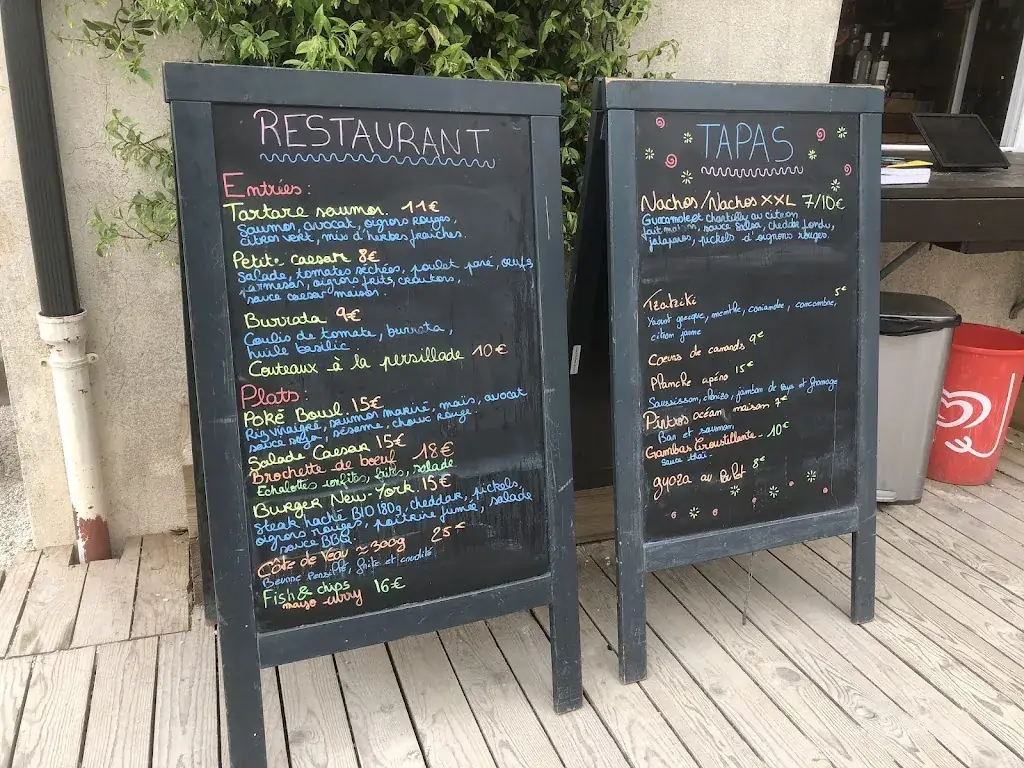 RESTAURANT
Entrées:
Tartare saumon. 11€
Saumon, avocat, oignons rouges,
citron vert, mix d'herbes fraîches.
Petite caesar 8€
Salade, tomates séchées, poulet pané, œufs,
parmesan, oignons frits, croutons,
sauce caesar maison.
Burrata 9€
Coulis de tomate, burrata,
huile basilic
Couteaux à la persillade 10€
Plats:
Poké Bowl. 15€
Riz vinaigré, saumon mariné, maïs, avocat
sauce soja, sésame, choux rouge.
Salade Caesar 15€
Brochette de bœuf 18€
Echalotes confites, frites, salade
Burger New-York. 15€
steak haché BIO 180g, cheddar, pickels
oignons rouges, poitrine fumée, salade
sauce BBQ.
Côte de Veau ~300g 25€
Beurre Persillé, frite et crudité
Fish & chips 16€
mayo curry
TAPAS
Nachos/Nachos XXL 7/10€
Guacamole et chantilly au citron
fait maison, sauce salsa, cheddar fondu,
jalapenos, pickels d'oignons rouges.
Tzatziki 5€
Yaourt grecque, menthe, coriandre, concombre,
citron jaune
Coeurs de canards 9€
Planche apéro 15€
Saussisson, chorizo, jambon de Pays et fromage
Pintxos océan maison 7€
Bar et saumon,
Gambas Croustillante - 10€
sauce thaï.
gyoza au Poulet 8€